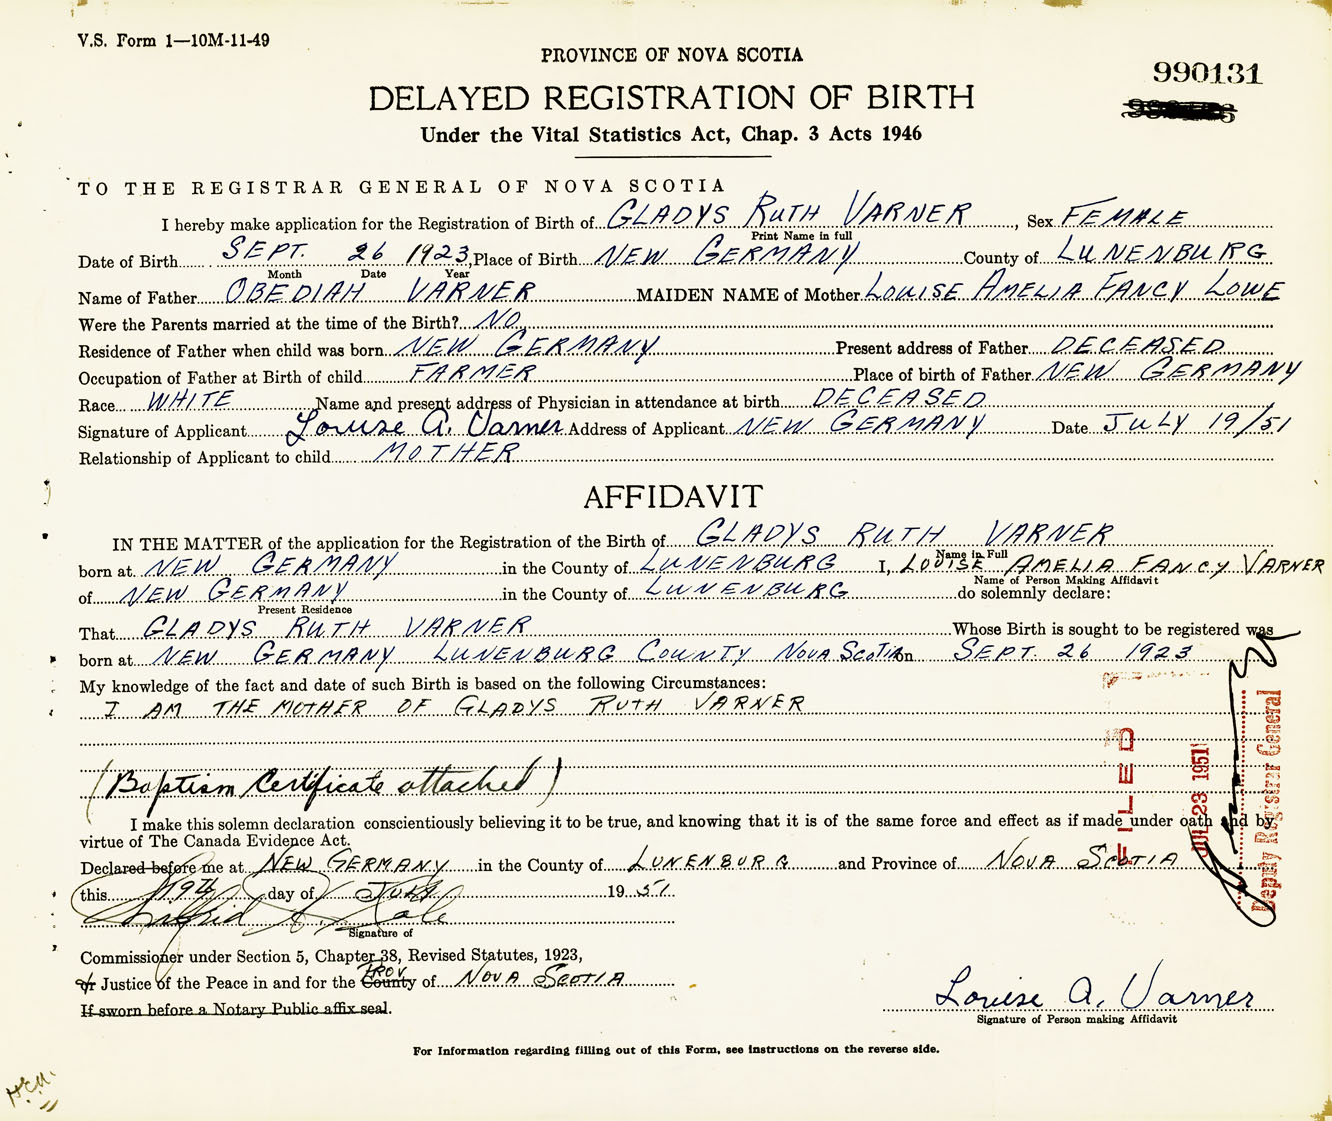 V.S. Form 1—10M-11-49
PROVINCE OF NOVA SCOTIA
990131
DELAYED REGISTRATION OF BIRTH
Under the Vital Statistics Act, Chap. 3 Acts 1946
TO THE REGISTRAR GENERAL OF NOVA SCOTIA
I hereby make application for the Registration of Birth of GLADYS RUTH VARNER, Sex FEMALE
Print Name in full
Date of Birth SEPT. 26 1923, Place of Birth NEW GERMANY County of LUNENBURG
Month Date Year
Name of Father OBEDIAH VARNER MAIDEN NAME of Mother LOUISE AMELIA FANCY LOWE
Were the Parents married at the time of the Birth? NO
Residence of Father when child was born NEW GERMANY Present address of Father DECEASED
Occupation of Father at Birth of child FARMER Place of birth of Father NEW GERMANY
Race WHITE Name and present address of Physician in attendance at birth DECEASED
Signature of Applicant Louise A. Varner Address of Applicant NEW GERMANY Date JULY 19/51
Relationship of Applicant to child MOTHER
AFFIDAVIT
IN THE MATTER of the application for the Registration of the Birth of GLADYS RUTH VARNER
Name in Full
born at NEW GERMANY in the County of LUNENBURG I, LOUISE AMELIA FANCY VARNER
Name of Person Making Affidavit
of NEW GERMANY in the County of LUNENBURG do solemnly declare:
Present Residence
That GLADYS RUTH VARNER Whose Birth is sought to be registered was
born at NEW GERMANY LUNENBURG COUNTY NOVA SCOTIA on SEPT. 26 1923
My knowledge of the fact and date of such Birth is based on the following Circumstances:
I AM THE MOTHER OF GLADYS RUTH VARNER
(Baptism Certificate attached)
I make this solemn declaration conscientiously believing it to be true, and knowing that it is of the same force and effect as if made under oath and by
virtue of The Canada Evidence Act.
Declared before me at NEW GERMANY in the County of LUNENBURG and Province of NOVA SCOTIA
this 19th day of JULY 1951.
Signature of
Commissioner under Section 5, Chapter 38, Revised Statutes, 1923,
PROV
or Justice of the Peace in and for the County of NOVA SCOTIA
If sworn before a Notary Public affix seal.
Louise A. Varner
Signature of Person making Affidavit
For Information regarding filling out of this Form, see instructions on the reverse side.
FILED
JUL 23 1951
Deputy Registrar General